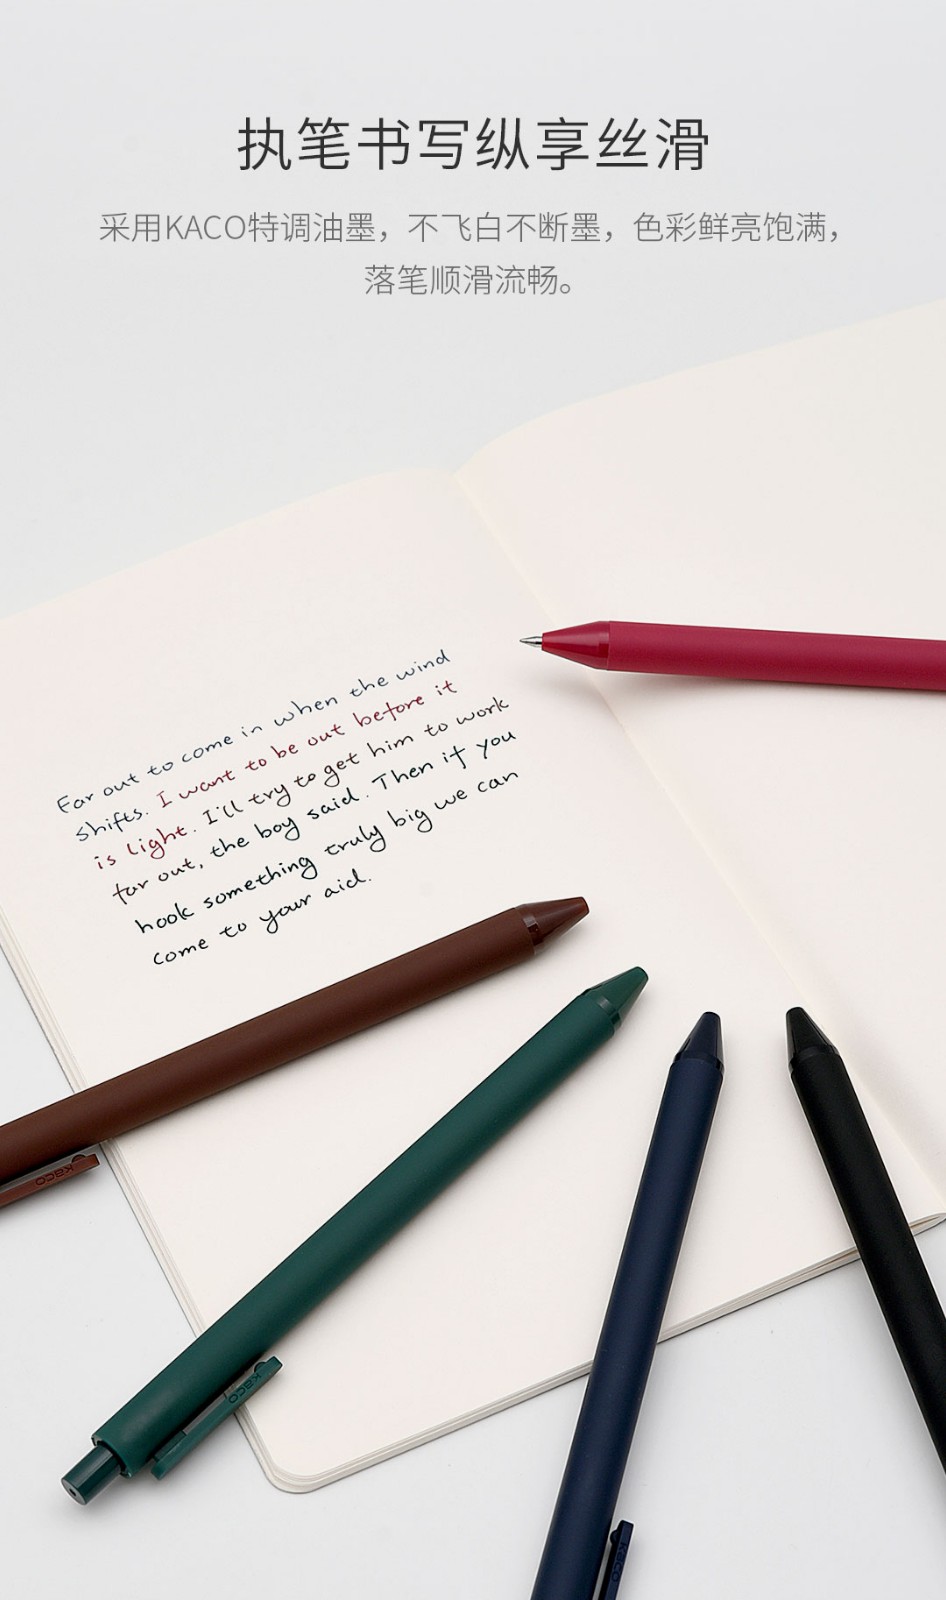 执笔书写纵享丝滑
采用KACO特调油墨，不飞白不断墨，色彩鲜亮饱满，
落笔顺滑流畅。
Far out to come in when the wind
shifts. I want to be out before it
is light. I'll try to get him to work
far out, the boy said. Then if you
hook something truly big we can
come to your aid.
KACO
KACO
KACO